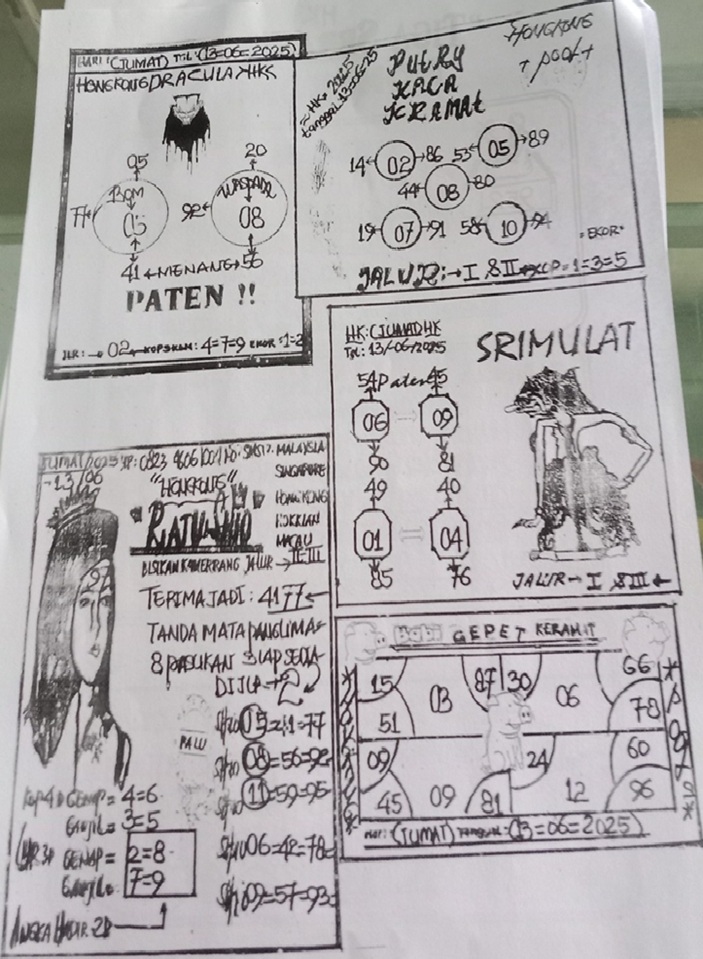 HARI: (JUMAT) TGL: (13=06=2025)
HONGKONG DRACULA HK
05 20
BOM WASPADA
77 05 92 08
41 MENANG 56
PATEN !!
JLR: 02 KOP 4=7=9 EKOR 1=2
HK. 2025
tanggal 13=06=25
PUTRY
KACA
KRAMAt
HONGKONG
+ pool +
14 02 86 53 05 89
44 08 80
19 07 91 58 10 94
EKOR
JALUR: I & II KOP=1=3=5
HK: (JUMAD HK
TGL: 13/-06/2025
SRIMULAT
54 Paten 45
06 09
90 81
49 40
01 04
85 76
JALUR I & III
JUMAT/2025 HP: 0823
13/06
"HONGKONG"
RATU
MALAYSIA
SINGAPORE
HONGKONG
HOKKIAN
MACAU
BISIKAN KAWERRANG JALUR II=III
TERIMA JADI: 4177
TANDA MATA PANGLIMA=
8 PASUKAN SIAP SEDIA
DI JLR 2
PALU
Shio 05=41=77
Shio 08=56=92
Shio 11=59=95
Shio 06=42=78=
Shio 09=57=93=
Kop 4D GENAP= 4=6
GANJIL= 3=5
GENAP= 2=8
GANJIL= 7=9
ANGKA HADIR 2D
Babi GEPET KERAMAT
15 03 87 30 06 66
51 78
09 24 60
45 09 81 12 96
HARI: (JUMAT) TANGGAL: (13=06=2025)